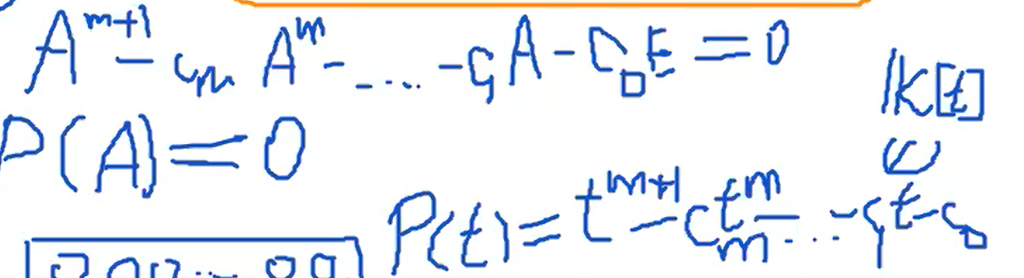 A^{m+1} - c_m A^m - ... - c_1 A - c_0 E = 0
K[t]
P(A) = 0
P(t) = t^{m+1} - c_m t^m - ... - c_1 t - c_0